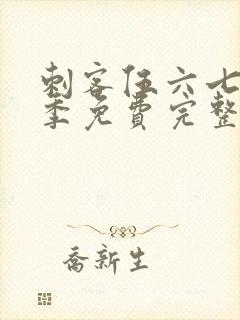 刺客伍六七
季免费完整
乔新生